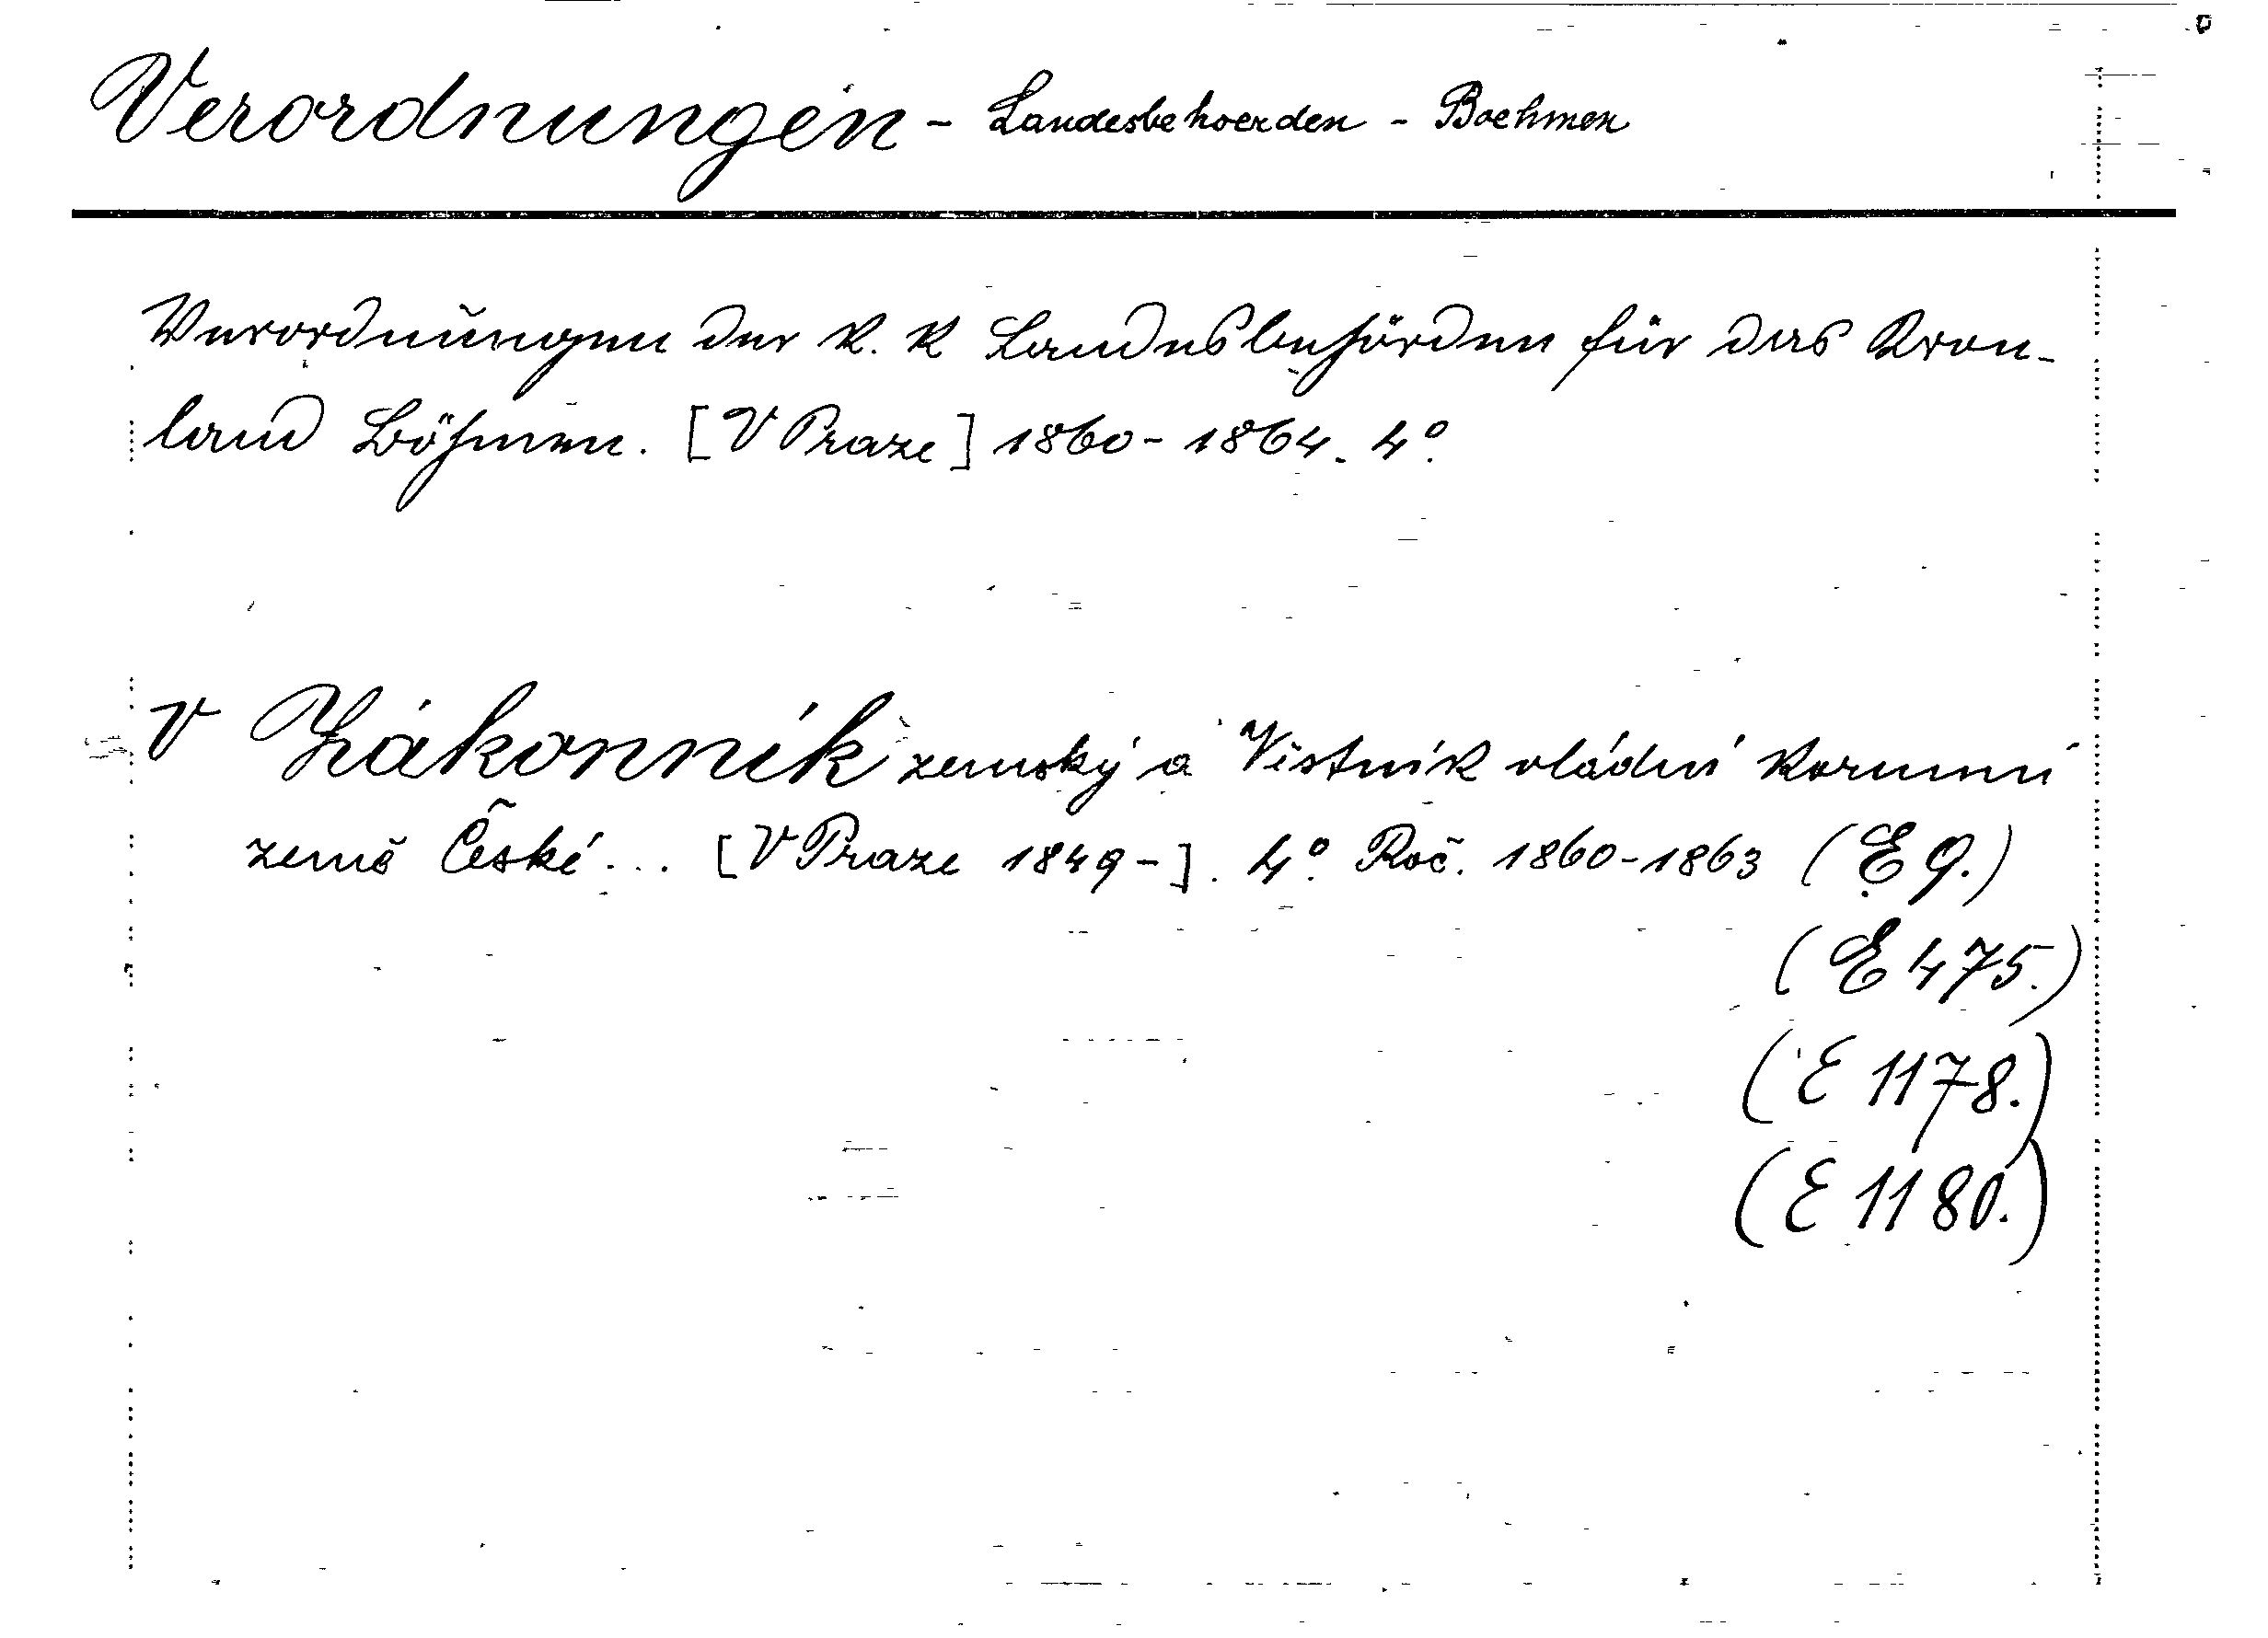 Verordnungen - Landesbehoerden - Boehmen
Verordnungen der k. k Landesbehörden für das Kron-
land Böhmen. [V Praze] 1860-1864. 4°.
v Zákonník zemský a Věstník vládní korunní
země České... [V Praze 1849-]. 4°. Roč. 1860-1863 (E 9.)
(E 475.)
(E 1178.)
(E 1180.)